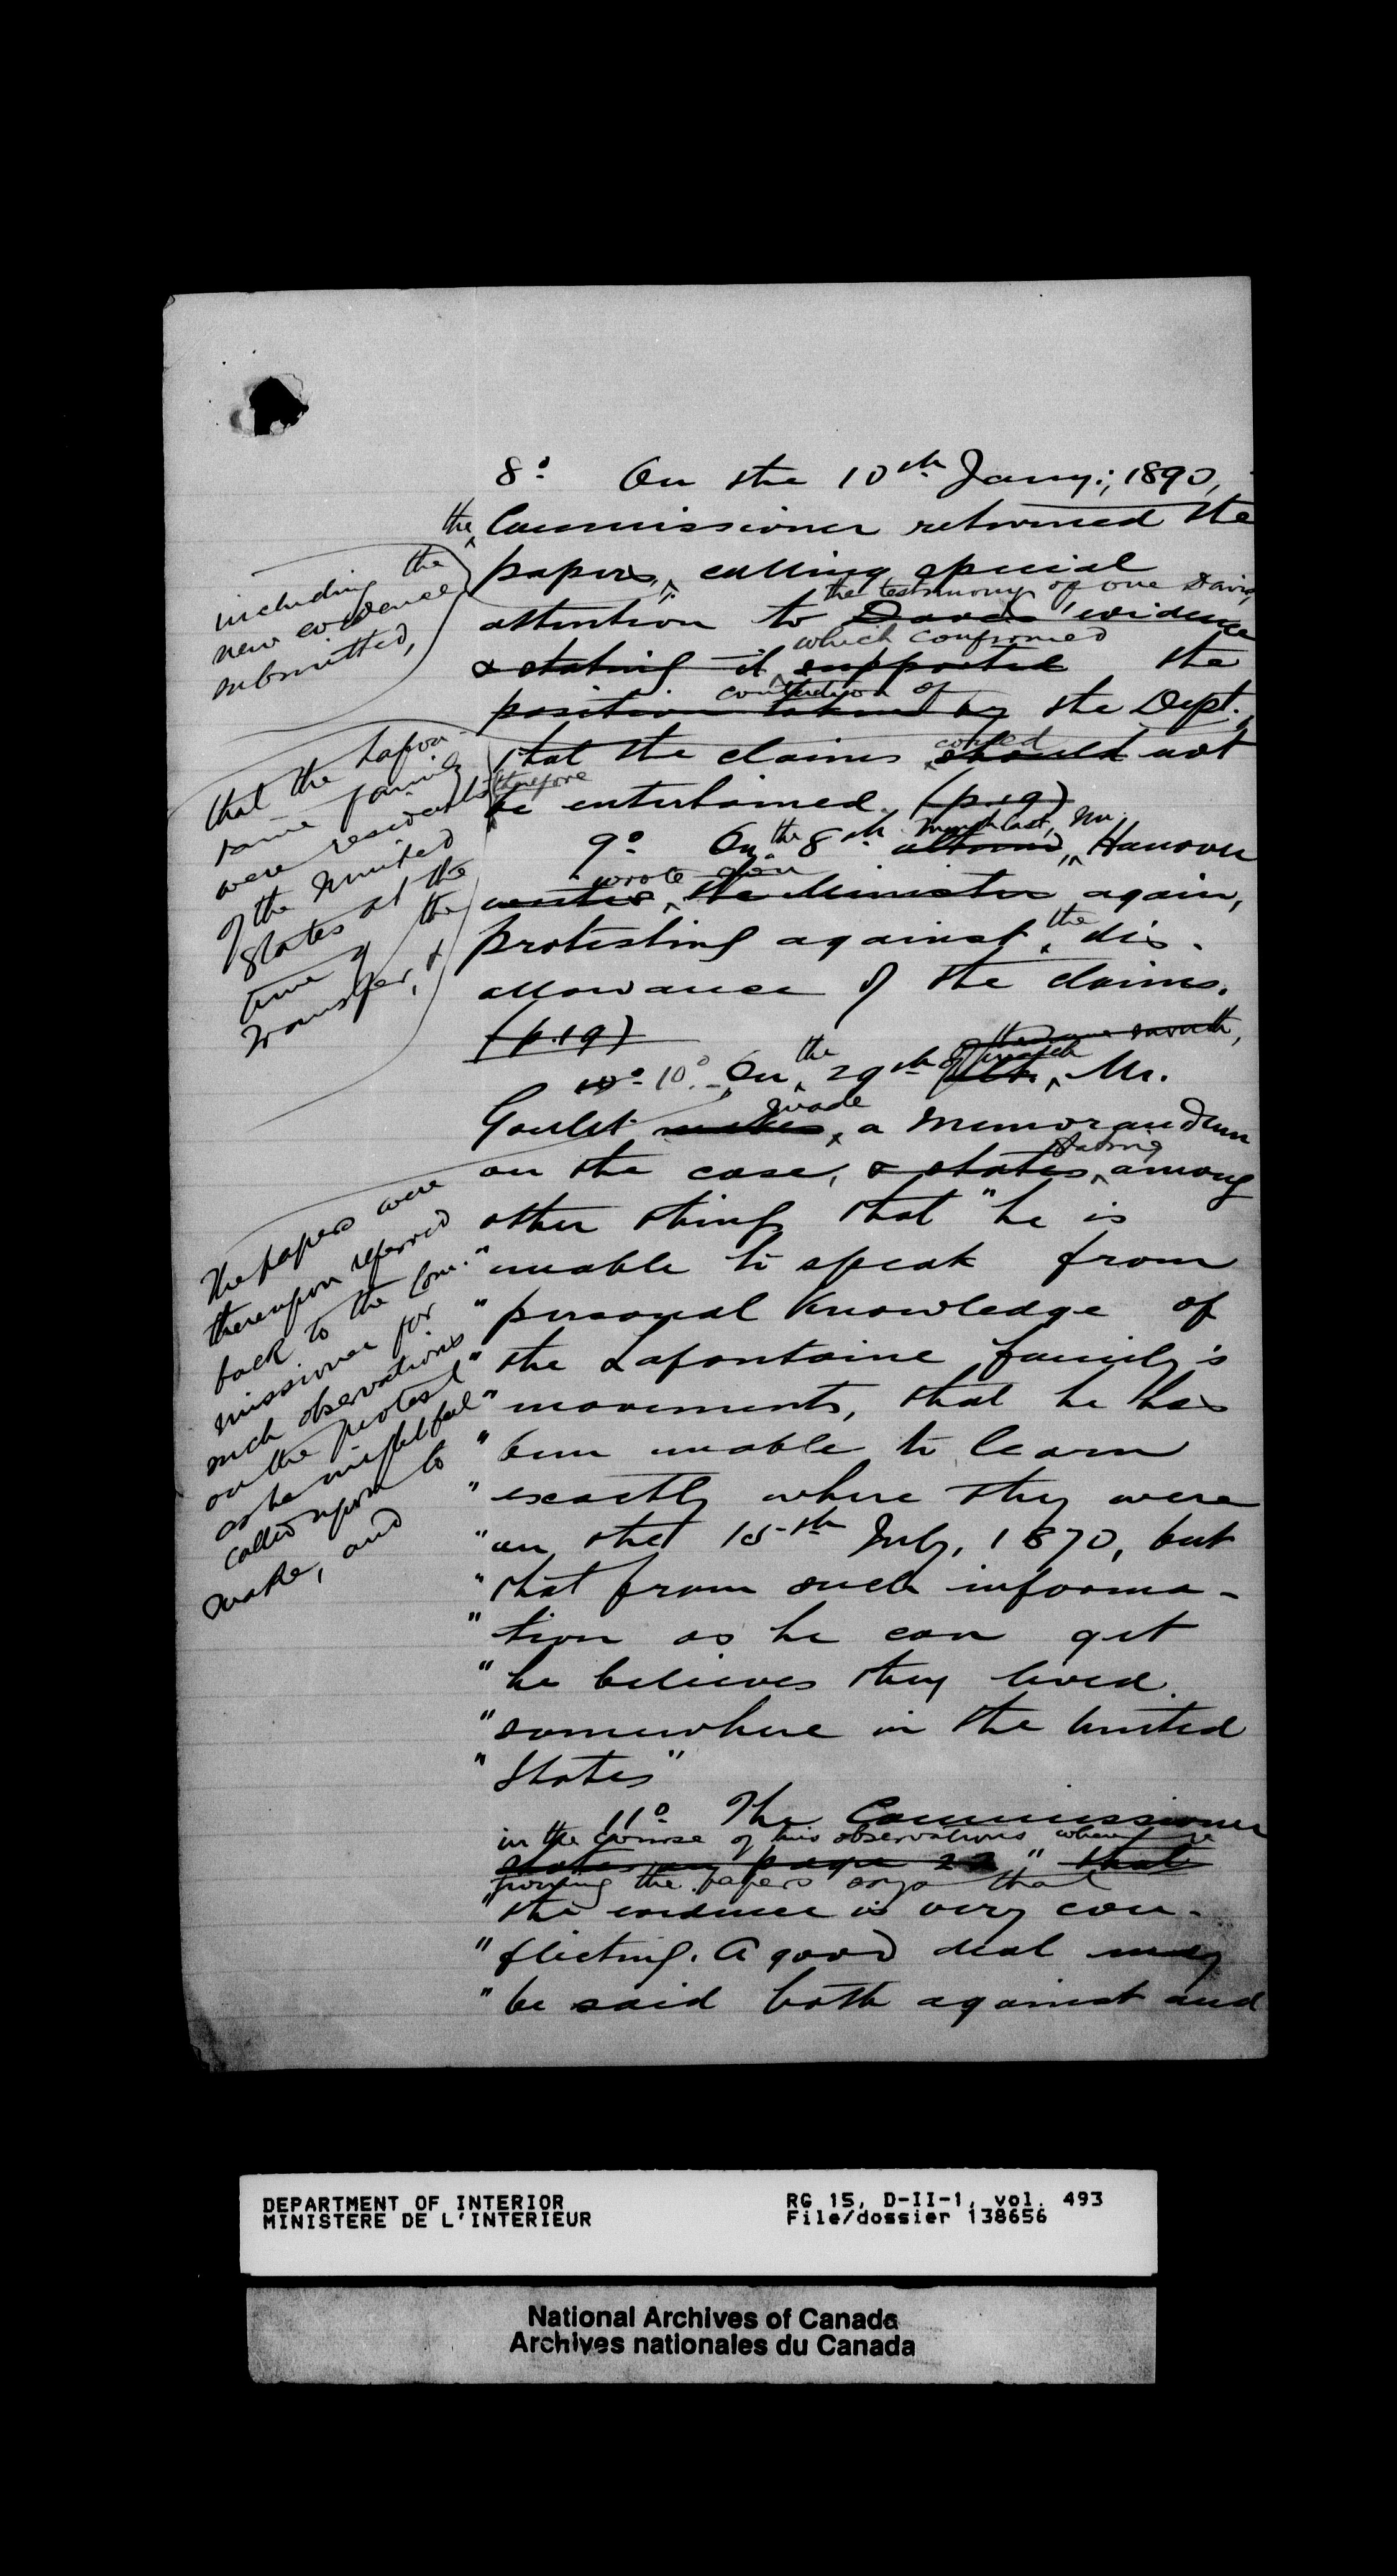 8º On the 10th Jany:, 1890,
the Commissioner returned the
papers, calling special
including the
new evidence
submitted,
the testimony of one Davis,
attention to Davis' evidence
which confirmed
& stating it supported the
contention of
position taken by the Dept.
that the Lafon-
taine family
were residents
of the United
States at the
time of the
transfer, &
could
that the claims should not
therefore
be entertained. (p.19)
9º On the 8th March last, Mr. Hanover
wrote
writes the Minister again,
protesting against the dis-
allowance of the claims.
(p.19)
the same month,
10º 10º. On the 29th of March Mr.
made
Goulet makes a memorandum
stating
on the case, & states among
The papers were
thereupon referred
back to the Com-
missioner for
such observations
on the protest
as he might feel
called upon to
make, and
other things that "he is
"unable to speak from
"personal knowledge of
"the Lafontaine family's
"movements, that he has
"been unable to learn
"exactly where they were
"on the 15th July, 1870, but
"that from such informa-
"tion as he can get
"he believes they lived
"somewhere in the United
"States"
11º The Commissioner
in the course of his observations when re
states on page 22 " that
turning the papers says that
"the evidence is very con-
"flicting. A good deal may
"be said both against and
DEPARTMENT OF INTERIOR
MINISTERE DE L'INTERIEUR
RG 15, D-II-1, vol. 493
File/dossier 138656
National Archives of Canada
Archives nationales du Canada